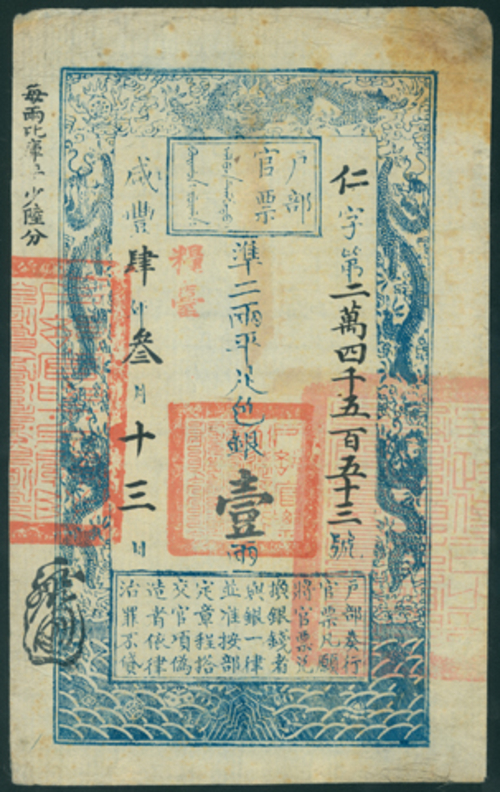 户部
官票
仁字第二萬四千五百五十三號
準二兩平足色銀壹兩
糧臺
咸豐肆年叁月十三日
每兩比庫平少陸分
户部奏行
官票凡願
將官票兌
換銀錢者
與銀一律
並准按部
定章程搭
交官項偽
造者依律
治罪不貸